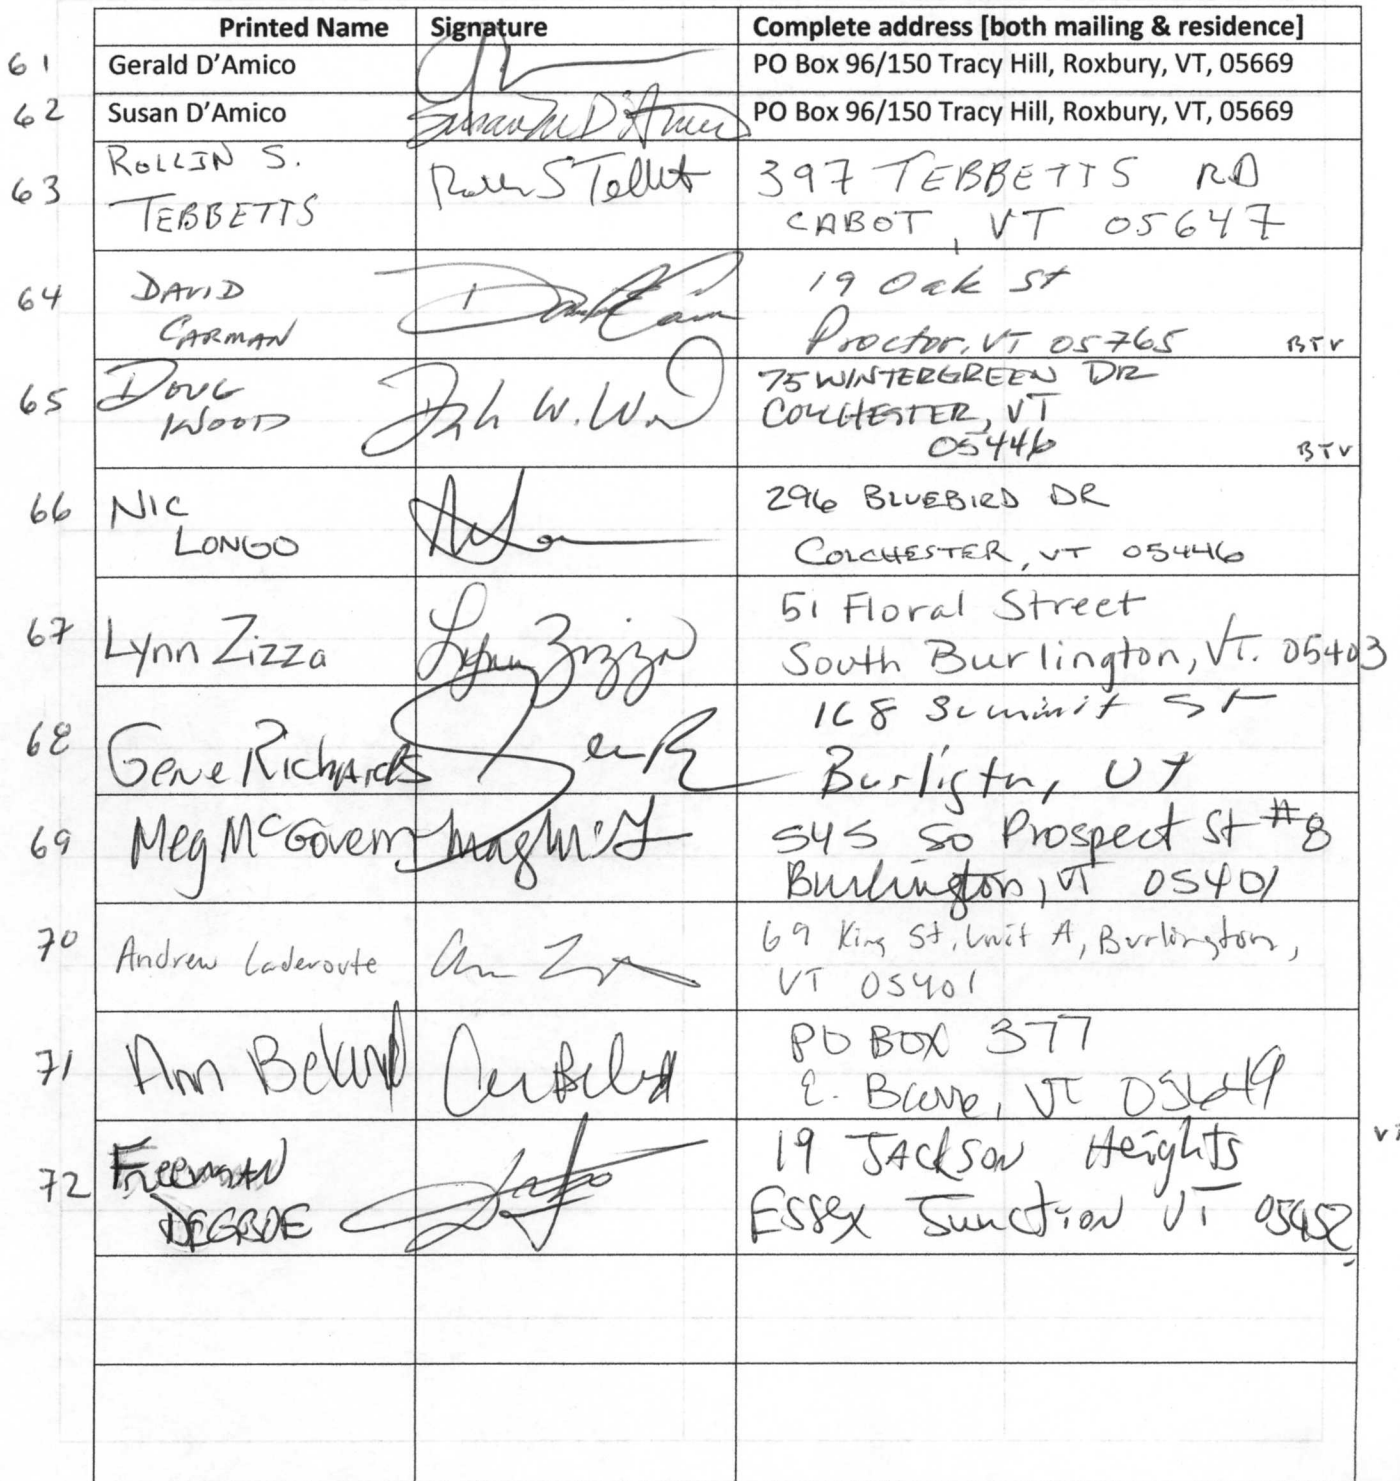 Printed Name Signature Complete address [both mailing & residence]
61 Gerald D'Amico PO Box 96/150 Tracy Hill, Roxbury, VT, 05669
62 Susan D'Amico Susan M D'Amico PO Box 96/150 Tracy Hill, Roxbury, VT, 05669
63 ROLLIN S. 397 TEBBETTS RD
TEBBETTS CABOT, VT 05647
64 DAVID 19 Oak St
CARMAN Proctor, VT 05765 BTV
65 DOUG 75 WINTERGREEN DR
WOOD COLCHESTER, VT
05446 BTV
66 NIC 296 BLUEBIRD DR
LONGO COLCHESTER, VT 05446
67 Lynn Zizza Lynn Zizza 51 Floral Street
South Burlington, VT. 05403
68 Gene Richards 168 Summit St
Burligtn, VT
69 Meg McGovern 545 So Prospect St #8
Burlington, VT 05401
70 Andrew Laderoute 69 King St, Unit A, Burlington,
VT 05401
71 Ann PO BOX 377
E. VT 05649
72 Freeman 19 JACKSON Heights
DEGROE Essex Junction VT 05452